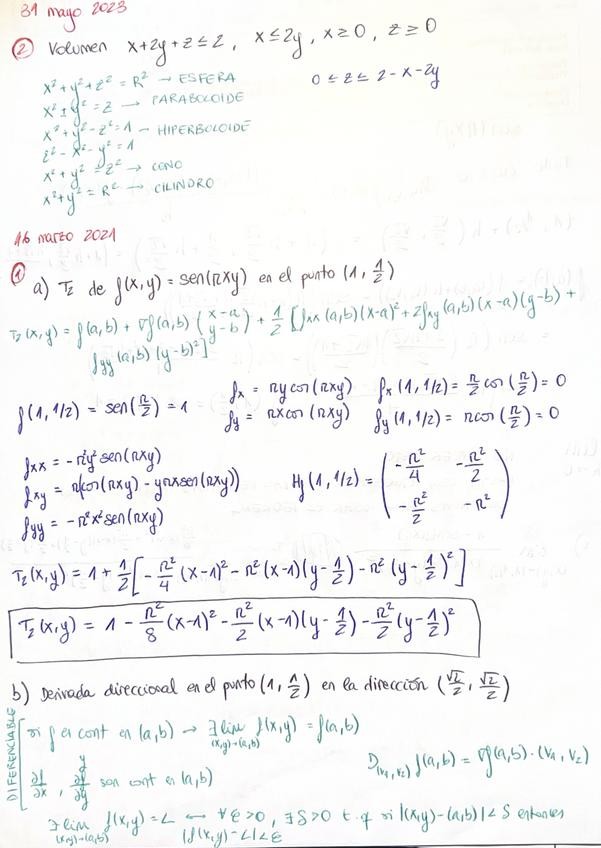 31 mayo 2023
② Volumen x+2y+z≤2, x≤2y, x≥0, z≥0
x²+y²+z²=R² → ESFERA
0≤z≤2-x-2y
x²±y²=z → PARABOLOIDE
x²+y²-z²=1 → HIPERBOLOIDE
z²-x²-y²=1
x²+y²=z² → CONO
x²+y²=R² → CILINDRO
16 marzo 2021
① a) T₂ de f(x,y)=sen(πxy) en el punto (1, 1/2)
T₂(x,y)=f(a,b)+∇f(a,b)(x-a y-b)+1/2[fxx(a,b)(x-a)²+2fxy(a,b)(x-a)(y-b)+
fyy(a,b)(y-b)²]
f(1,1/2)=sen(π/2)=1 fx=πycos(πxy) fx(1,1/2)=π/2cos(π/2)=0
fy=πxcos(πxy) fy(1,1/2)=πcos(π/2)=0
fxx=-π²y²sen(πxy)
fxy=π(cos(πxy)-yπxsen(πxy)) Hf(1,1/2)=(-π²/4 -π²/2 -π²/2 -π²)
fyy=-π²x²sen(πxy)
T₂(x,y)=1+1/2[-π²/4(x-1)²-π²(x-1)(y-1/2)-π²(y-1/2)²]
T₂(x,y)=1-π²/8(x-1)²-π²/2(x-1)(y-1/2)-π²/2(y-1/2)²
b) Derivada direccional en el punto (1,1/2) en la dirección (√2/2, √2/2)
DIFERENCIABLE
si f es cont en (a,b) → ∃lim (x,y)→(a,b) f(x,y)=f(a,b)
D(v₁,v₂)f(a,b)=∇f(a,b)·(v₁,v₂)
y
∂f/∂x, ∂f/∂y son cont en (a,b)
∃lim (x,y)→(a,b) f(x,y)=L ↔ ∀ε>0, ∃δ>0 t.q si |(x,y)-(a,b)|<δ entonces
|f(x,y)-L|<ε